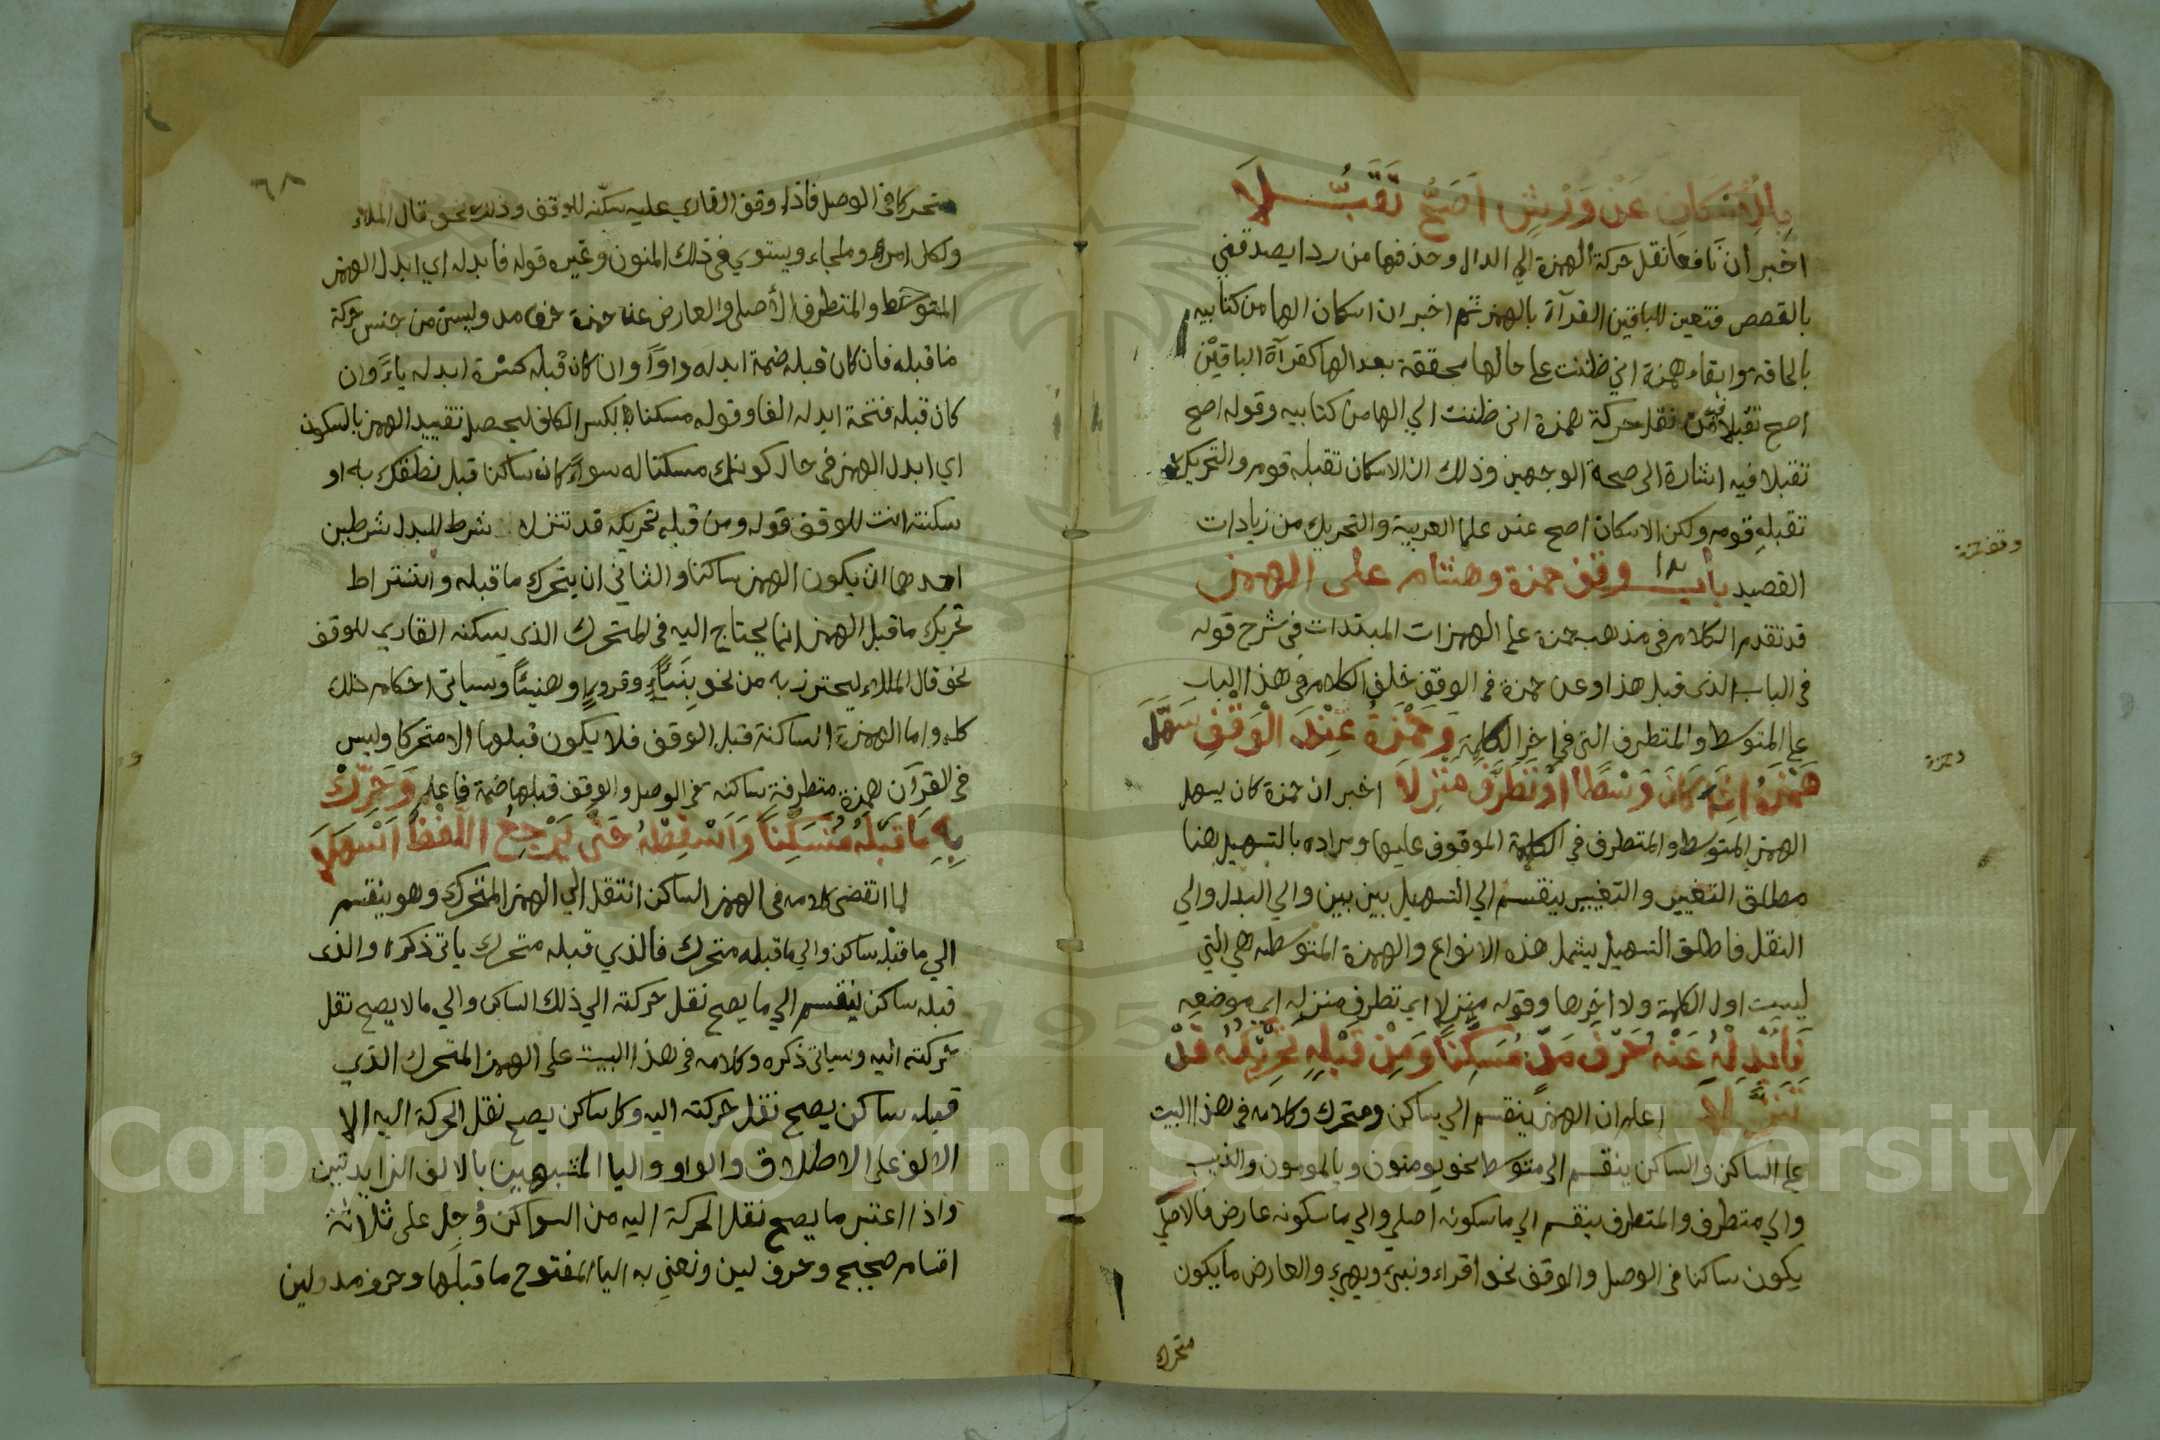 بِالْاِسْكَانِ عَنْ وَرْشٍ اَصَحُّ تَقَبُّـــلَا
اخبر أن نافعا نقل حركة الهمزة الي الدال وحذفها من ردا يصدقني
بالقصص فتعين للباقين القرآة بالهمز ثم اخبر ان اسكان الها من كتابيه
بالحاقه وابقاء همزة اني ظننت علي حالها محققة بعد الها كقرآة الباقين
اصح تقبلا من نقل حركة همزة انى ظننت الي الها من كتابيه وقوله اصح
تقبلا فيه اشارة الى صحة الوجهين وذلك ان الاسكان تقبله قوم والتحريك
تقبله قوم ولكن الاسكان اصح عند علما العربية والتحريك من زيادات
القصيد بأب وقف حمزة وهشام على الهمز
قد تقدم الكلام في مذهب حمزة علي الهمزات المبتدات في شرح قوله
في الباب الذي قبل هذا وعن حمزة في الوقف خلف الكلام في هذا الباب
علي المتوسط والمتطرف التي في اخر الكلمة وَحَمْزَةُ عِنْدَ الْوَقْفِ سَهَّلَ
هَمْزَهُ اِذَا كَانَ وَسْطًا اَوْ تَطَرَّفَ مَنْزِلَا اخبر ان حمزة كان يسهل
الهمز المتوسط والمتطرف في الكلمة الموقوف عليها ومراده بالتسهيل هنا
مطلق التغيير والتغيير ينقسم الي التسهيل بين بين والي البدل والي
النقل فاطلق التسهيل يشمل هذه الانواع والهمزة المتوسطه هي التي
ليست اول الكلمة ولا اخرها وقوله منزلا اي تطرف منزله اي موضعه
فَاَبْدِلْهُ عَنْهُ حَرْفَ مَدٍّ مُسَكِّنًا وَمِنْ قَبْلِهِ تَحْرِيْكُهُ قَدْ
تَنَزَّلَا اعلم ان الهمز ينقسم الي ساكن ومتحرك وكلامه في هذا البيت
علي الساكن والساكن ينقسم الى متوسط نحو يومنون وبالمومنون والذيب
والي متطرف والمتطرف ينقسم الي ما سكونه اصلي والي ما سكونه عارض فالاصلي
يكون ساكنا في الوصل والوقف نحو اقراء ونبئ ويهيء والعارض ما يكون
متحرك
وتفرحة
وحمزة
٦٨
متحركا في الوصل فاذا وقف القاري عليه سكنه للوقف وذلك نحو قال الملاء
ولكل امرء وملجاء ويستوي في ذلك المنون وغيره قوله فابدله اي ابدل الهمز
المتوسط والمتطرف الأصلي والعارض عن حمزة حرف مد ولين من جنس حركة
ما قبله فان كان قبله ضمة ابدله واوًا وان كان قبله كسْرة ابدله ياءً وان
كان قبله فتحة ابدله الفا وقوله مسكنا بكسر الكاف ليحصل تقييد الهمز بالسكون
اي ابدل الهمز في حال كونك مسكنا له سواءً كان ساكنا قبل نطقك به او
سكنته انت للوقف قوله ومن قبله تحريكه قد تنزلا شرط للبدل شرطين
احدهما ان يكون الهمز ساكنا والثاني ان يتحرك ما قبله واشتراط
تحريك ما قبل الهمز انما يحتاج اليه في المتحرك الذي يسكنه القاري للوقف
نحو قال الملاء ليحترز به من نحو بنيأ وقروء وهنيئًا وسياتي احكام ذلك
كله واما الهمزة الساكنة قبل الوقف فلا يكون قبلها الا متحركا وليس
في القرآن همزة متطرفة ساكنه في الوصل والوقف قبلها ضمة فاعلم وَحَرِّكْ
بِهِ مَا قَبْلَهُ مُتَسَكِّنًا وَاَسْقِطْهُ حَتَّى يَرْجِعُ اللَّفْظُ اَسْهَلَا
لما انقضى كلامه في الهمز الساكن انتقل الي الهمز المتحرك وهو ينقسم
الي ما قبله ساكن والي ما قبله متحرك فالذي قبله متحرك ياتي ذكره والذى
قبله ساكن ينقسم الي ما يصح نقل حركته الي ذلك الساكن والي ما لا يصح نقل
حركته اليه وسياتي ذكره وكلامه في هذا البيت على الهمز المتحرك الذي
قبله ساكن يصح نقل حركته اليه وكل ساكن يصح نقل الحركة اليه الا
الالف على الاطلاق والواو واليا المشبهين بالالف الزايدتين
واذا اعتبر ما يصح نقل الحركة اليه من السواكن وُجِد على ثلاثة
اقسام صحيح وحرف لين ونعني به اليا المفتوح ما قبلها وحرف مد ولين
Copyright © King Saud University
195